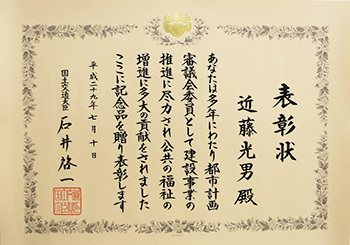 表彰状
近藤光男殿
あなたは多年にわたり都市計画
審議会委員として建設事業の
推進に尽力され公共の福祉の
増進に多大の貢献をされました
ここに記念品を贈り表彰します
平成二十九年七月十日
国土交通大臣
石井啓一